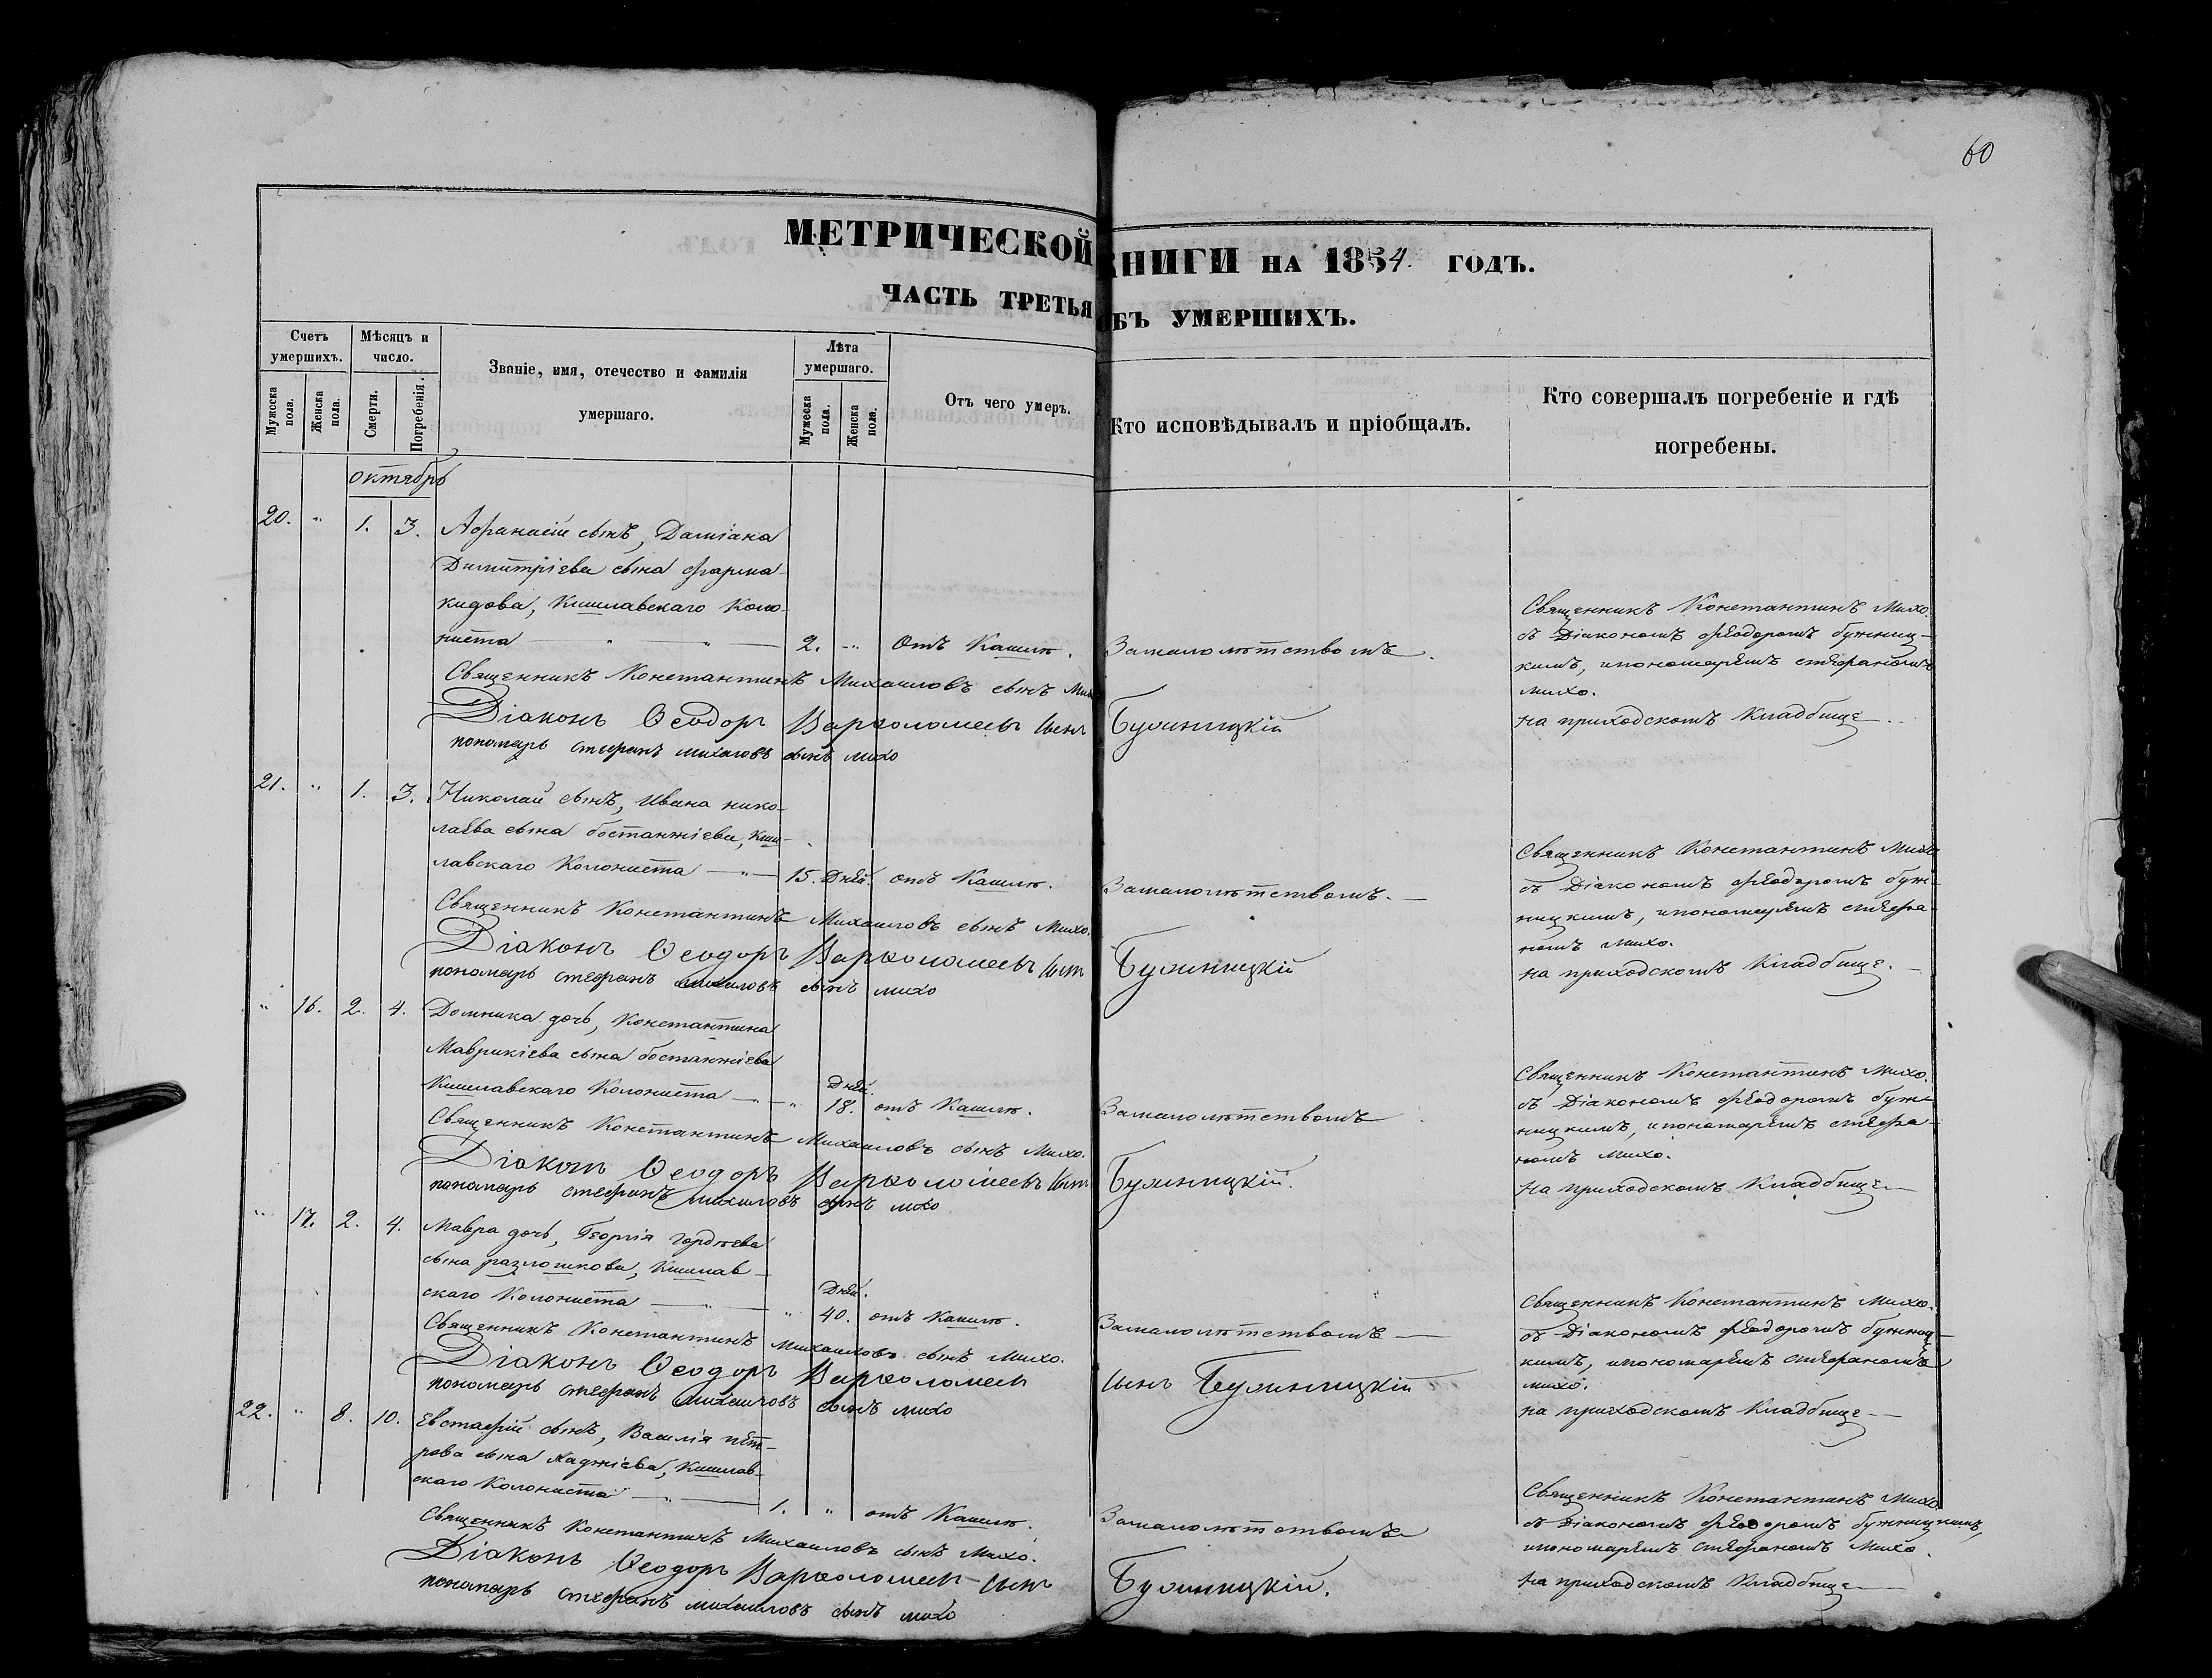 60
МЕТРИЧЕСКОЙ КНИГИ НА 1854. ГОДЪ.
ЧАСТЬ ТРЕТЬЯ ОБЪ УМЕРШИХЪ.
Счетъ умершихъ.
Мужеска пола.
Женска пола.
Мѣсяцъ и число.
Смерти.
Погребенія.
Званіе, имя, отечество и фамилія умершаго.
Лѣта умершаго.
Мужеска пола.
Женска пола.
Отъ чего умеръ.
Кто исповѣдывалъ и пріобщалъ.
Кто совершалъ погребеніе и гдѣ погребены.
октябрь
20. " 1. 3. Афанасій сынъ, Даміана
Димитріева сына фарма-
кидова, Кишлавскаго Коло-
ниста 2. " Отъ Кашлю. Замалолѣтствомъ.
Священникъ Константинъ Михо.
съ Діакономъ феодоромъ бужниц-
кимъ, ипономаремъ стефаномъ
михо.
на приходскомъ Кладбище
Священникъ Константинъ Михаиловъ сынъ Михо
Діаконъ Ѳеодоръ Варѳоломеевъ сынъ Бужницкій
пономарь стефанъ михаиловъ сынъ михо
21. " 1. 3. Николай сынъ, Ивана нико-
лаева сына бостанжіева, Киш-
лавскаго Колониста 15. Дней. отъ Кашлю. Замалолѣтствомъ.
Священникъ Константинъ Михо
съ Діакономъ феодоромъ буж-
ницкимъ, ипономаремъ стефа-
номъ михо.
на приходскомъ Кладбище.
Священникъ Константинъ Михаиловъ сынъ Михо.
Діаконъ Ѳеодоръ Варѳоломеевъ сынъ Бужницкій
пономарь стефанъ михаиловъ сынъ михо
" 16. 2. 4. Домника дочь, Константина
Маврикіева сына бостанжіева
Кишлавскаго Колониста " Дней. 18. отъ Кашлю. Замалолѣтствомъ
Священникъ Константинъ Михо.
съ Діакономъ феодоромъ буж-
ницкимъ, ипономаремъ стефа-
номъ михо.
на приходскомъ Кладбище
Священникъ Константинъ Михаиловъ сынъ Михо.
Діаконъ Ѳеодоръ Варѳоломеевъ сынъ Бужницкій.
пономарь стефанъ михаиловъ сынъ михо
" 17. 2. 4. Мавра дочь, Георгія гордѣева
сына разлошкова, Кишлав-
скаго Колониста " Дней. 40. отъ Кашлю. Замалолѣтствомъ
Священникъ Константинъ Михо.
съ Діакономъ феодоромъ бужниц-
кимъ, ипономаремъ стефаномъ
михо.
на приходскомъ Кладбище
Священникъ Константинъ Михаиловъ сынъ Михо.
Діаконъ Ѳеодоръ Варѳоломеев сынъ Бужницкій
пономарь стефанъ михаиловъ сынъ михо
22. " 8. 10. Евстафій сынъ, Василія пет-
рова сына хаджіева, Кишлав-
скаго Колониста 1. " отъ Кашлю. Замалолѣтствомъ
Священникъ Константинъ Михо.
съ Діакономъ феодоромъ бужницкимъ,
ипономаремъ стефаномъ Михо.
на приходскомъ Кладбище
Священникъ Константинъ Михаиловъ сынъ Михо.
Діаконъ Ѳеодоръ Варѳоломеев сынъ Бужницкій.
пономарь стефанъ михаиловъ сынъ михо